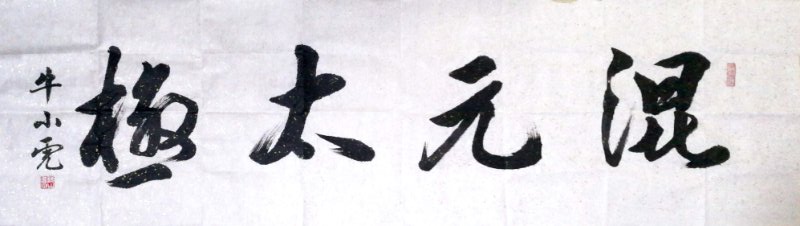 混元太極
牛小虎